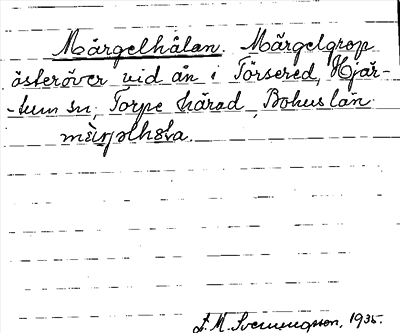 Märgelhålan. Märgelgrop
österöver vid ån i Törsered, Hjär-
-tum sn, Torpe härad, Bohuslän.
mæ̀rjəlhɷla.
L. M. Svenungsson, 1935.